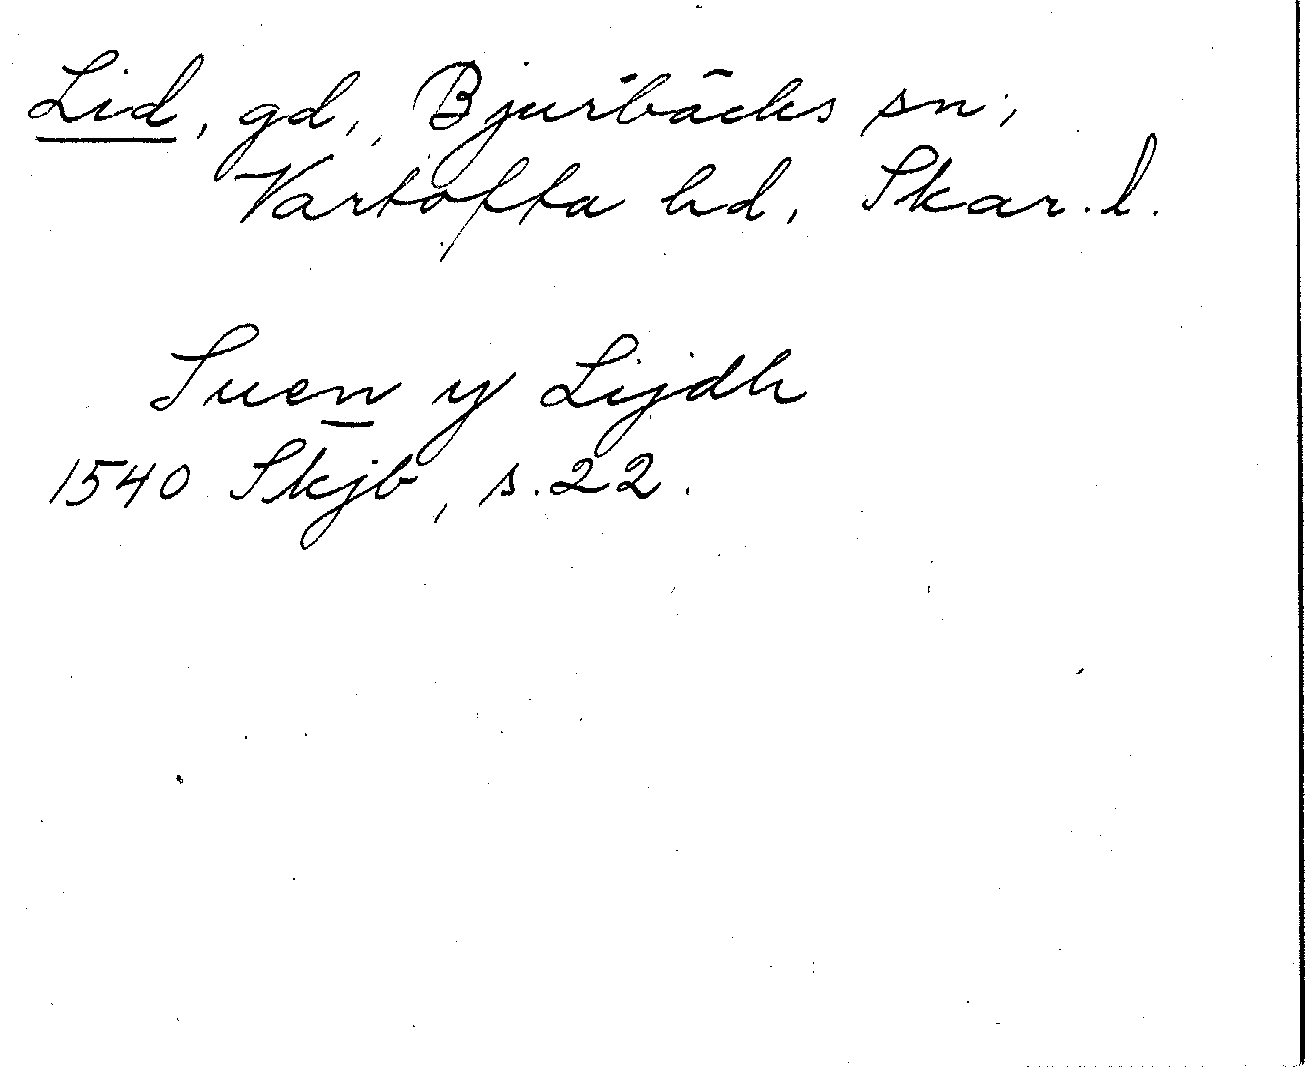 Lid, gd, Bjurbäcks sn,
Vartofta hd, Skar. l.
Suen y Lijdh
1540 Skjb, s. 22.